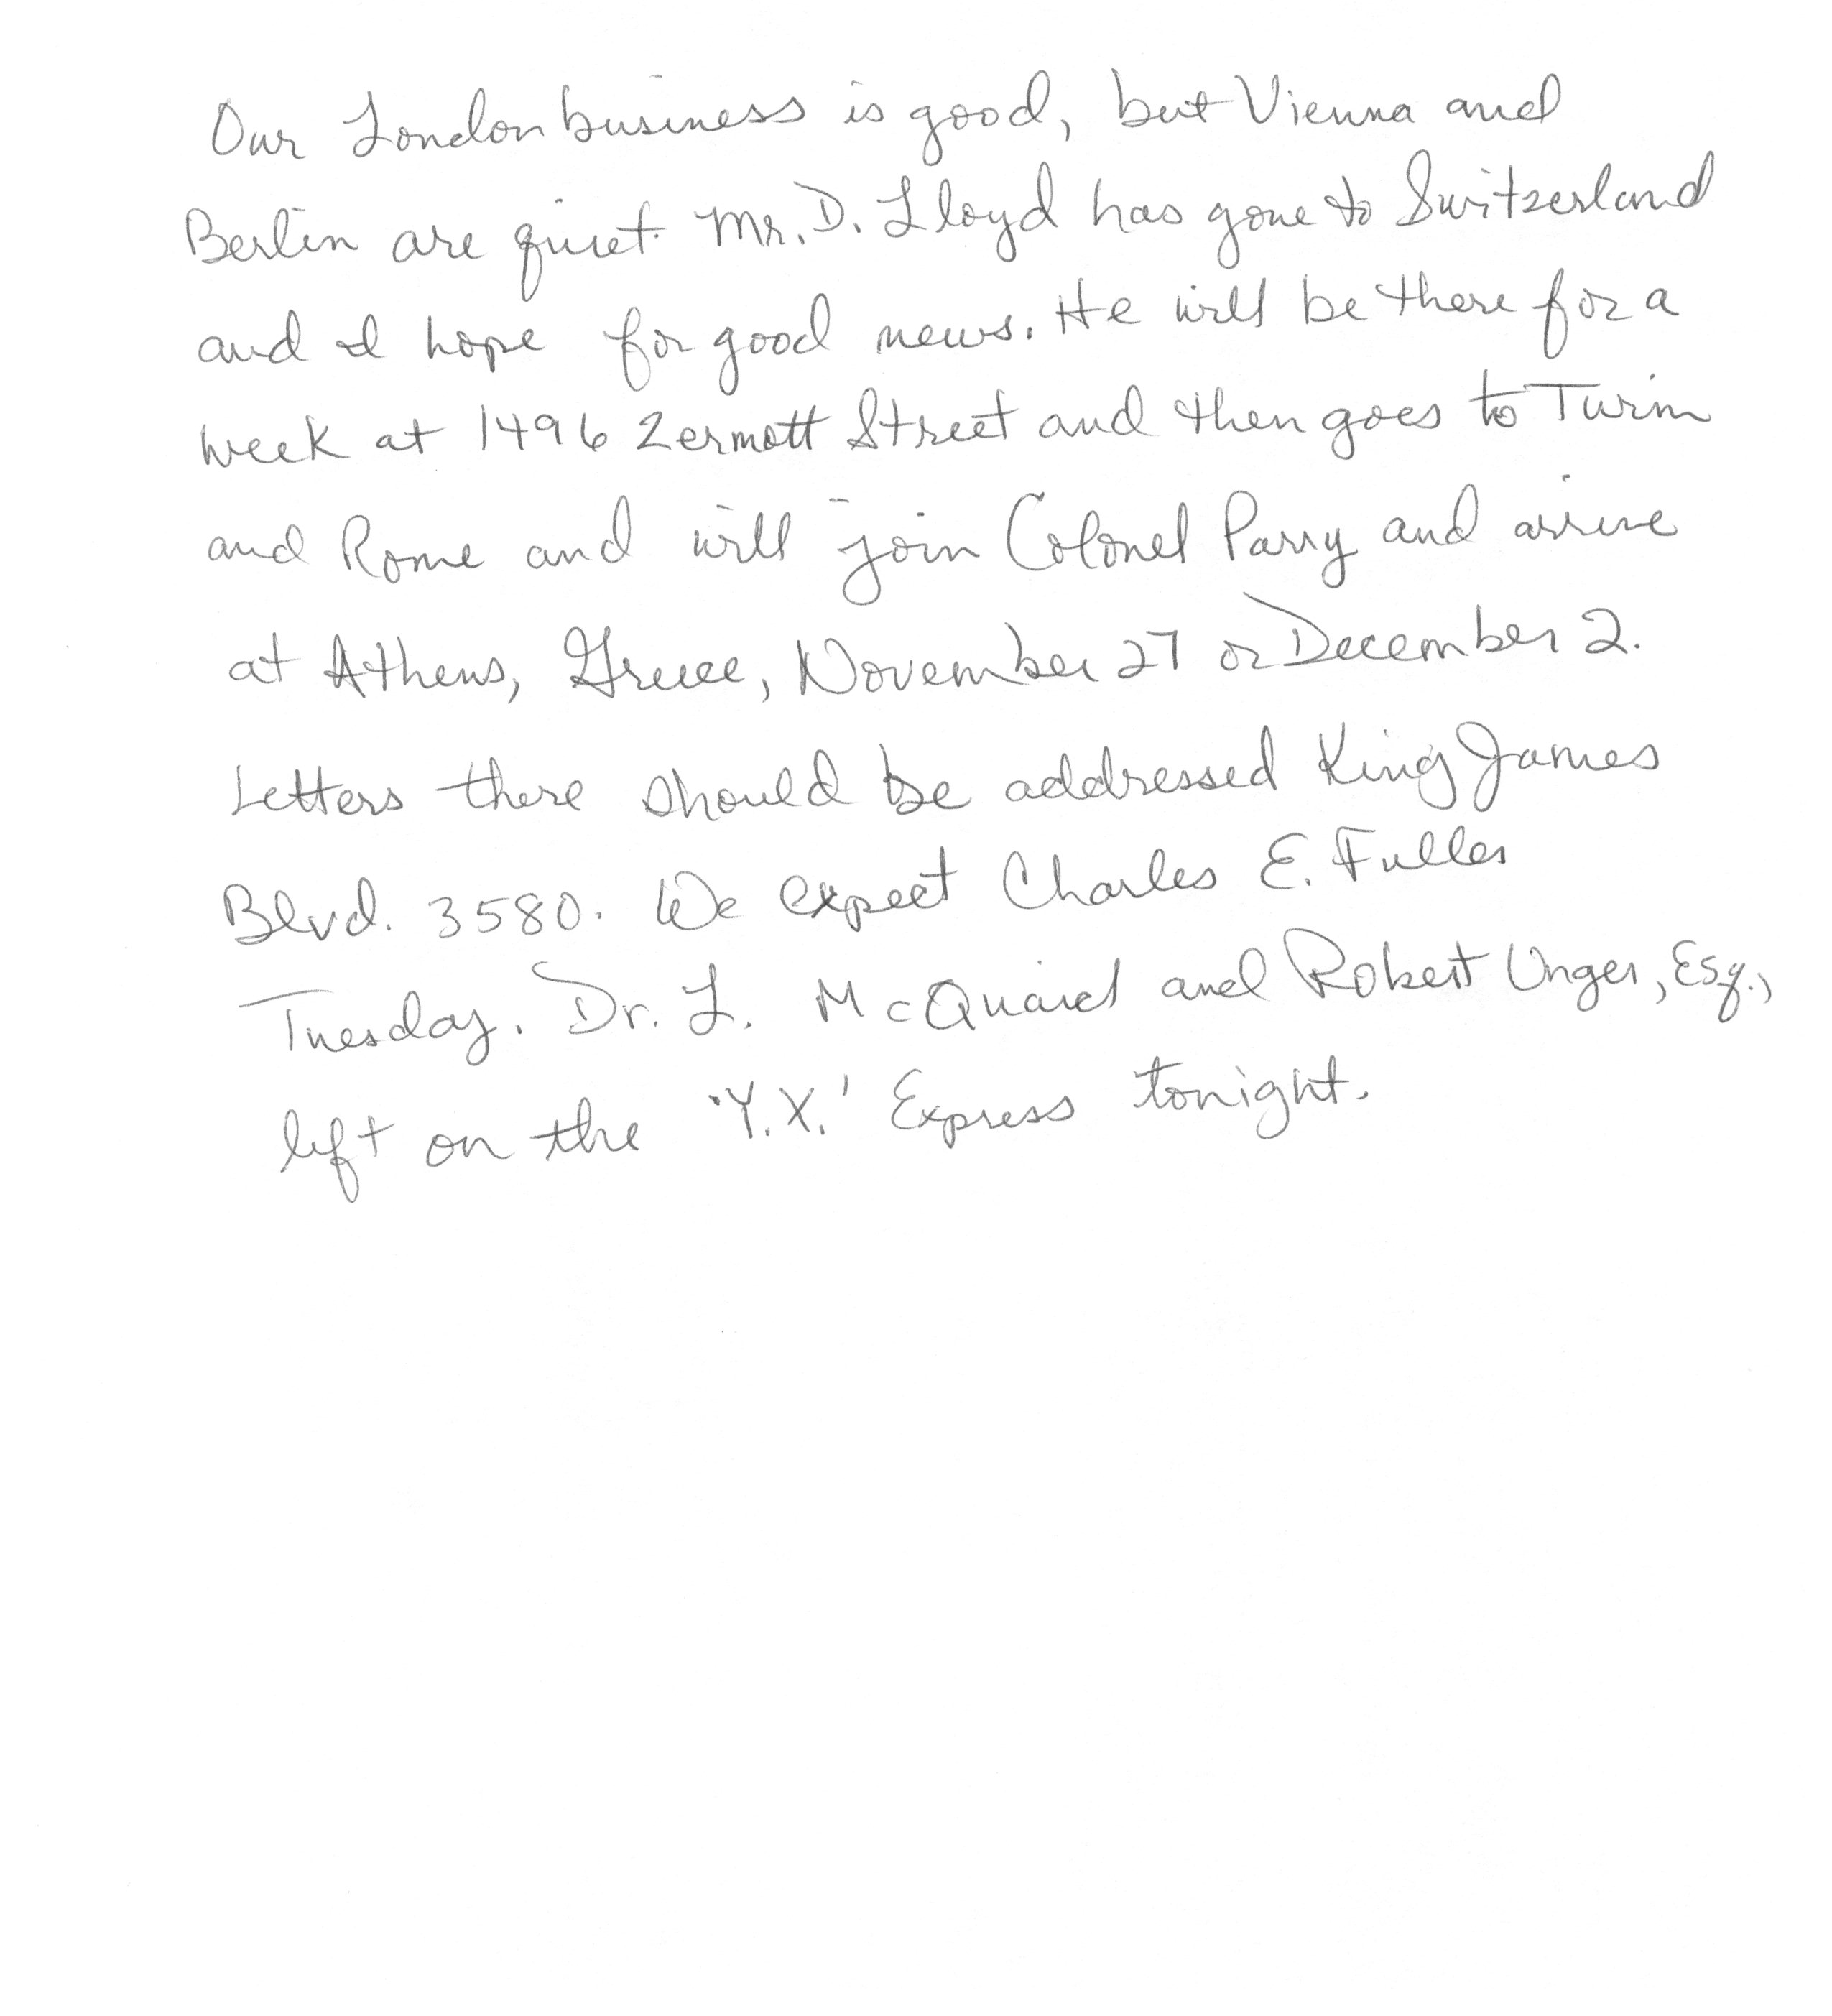 Our London business is good, but Vienna and
Berlin are quiet. Mr. D. Lloyd has gone to Switzerland
and I hope for good news. He will be there for a
week at 1496 Zermott Street and then goes to Turin
and Rome and will join Colonel Parry and arrive
at Athens, Greece, November 27 or December 2.
Letters there should be addressed King James
Blvd. 3580. We expect Charles E. Fuller
Tuesday. Dr. L. McQuaid and Robert Unger, Esq.,
left on the 'Y.X.' Express tonight.